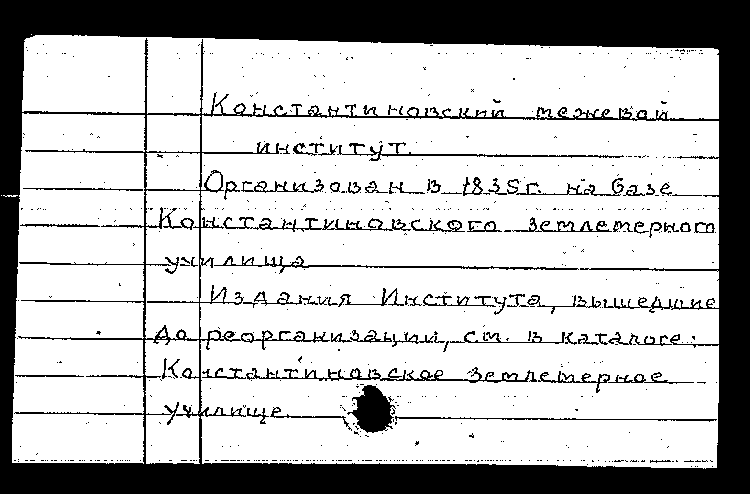 Константиновский межевой
институт.
Организован в 1835г. на базе
Константиновского землемерного
училища
Издания Института, вышедшие
до реорганизации, см. в каталоге:
Константиновское землемерное
училище.